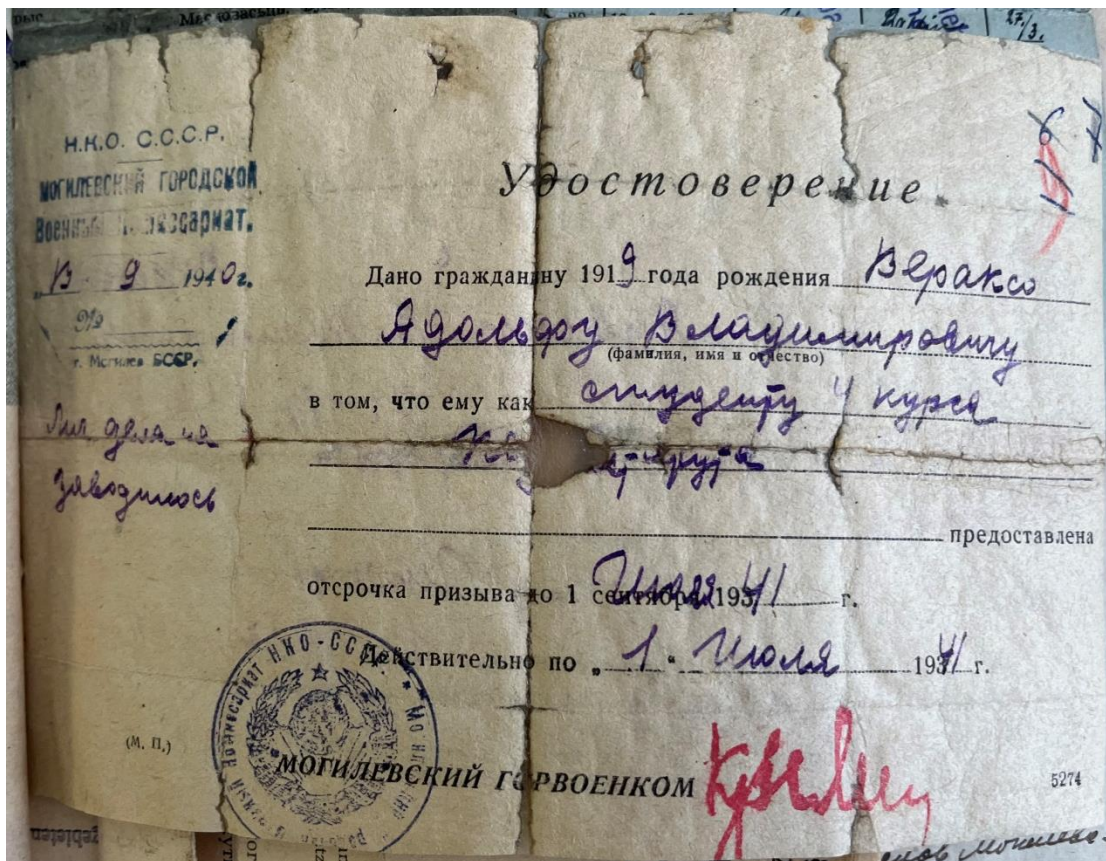 Н.К.О. С.С.С.Р.
МОГИЛЕВСКИЙ ГОРОДСКОЙ
Военный Комиссариат.
„13 9 1940г.
№
г. Могилев БССР.
Лич дела не
заводилось
Удостоверение.
Дано гражданину 1919 года рождения Вераксо
Адольфу Владимировичу
(фамилия, имя и отчество)
в том, что ему как студенту 4 курса
предоставлена
отсрочка призыва до 1 сентября Июля 1941 г.
Действительно по „1" Июля 1941 г.
(М. П.)
МОГИЛЕВСКИЙ ГОРВОЕНКОМ
5274
gebieten
27/3.